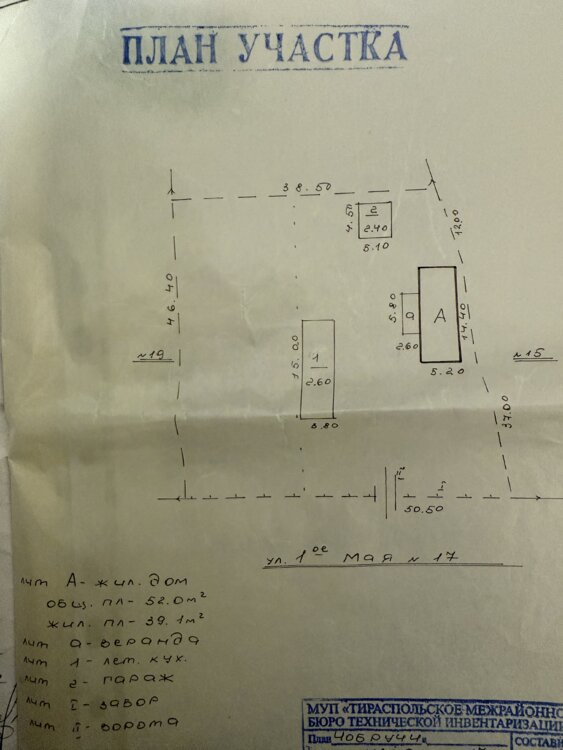 ПЛАН УЧАСТКА
38.50
4.50
2
2.40
5.10
12.00
46.40
5.80
а
А
14.40
2.60
5.20
15.00
1
2.60
3.80
№19
№15
37.00
II
I
50.50
ул. 1ое МАЯ № 17
лит А- жил. дом
общ. пл- 52.0 м²
жил. пл- 39.1 м²
лит а- веранда
лит 1- лет. кух.
лит 2- гараж
лит I- забор
лит II- ворота
МУП «ТИРАСПОЛЬСКОЕ МЕЖРАЙОННО
БЮРО ТЕХНИЧЕСКОЙ ИНВЕНТАРИЗАЦИИ
План ЧОБРУЧИ СОСТАВИ